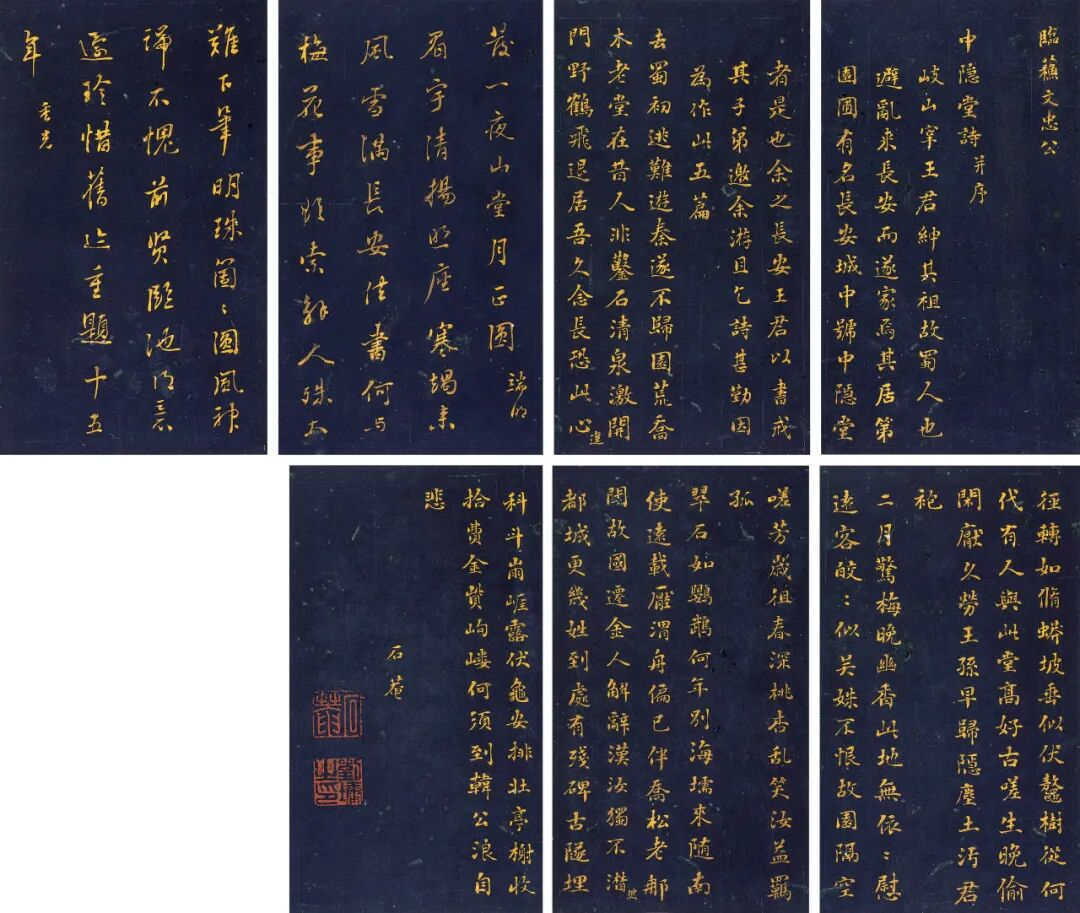 臨蘇文忠公
中隱堂詩 并序
岐山宰王君紳其祖故蜀人也
避亂來長安而遂家焉其居第
園圃有名長安城中號中隱堂
者是也余之長安王君以書戒
其子弟邀余游且乞詩甚勤因
為作此五篇
去蜀初逃難遊秦遂不歸園荒喬
木老堂在昔人非鑿石清泉激開
門野鶴飛退居吾久念長恐此心違
發一夜山堂月正圓 端明
眉宇清揚照座寒朅来
風雪滿長安法書何与
梅花事欲索解人殊大
難下筆明珠箇〻圓風神
端不愧前賢臨池得意
還珍惜舊迹重題十五
年
徑轉如脩蟒坡垂似伏鼇樹從何
代有人與此堂高好古嗟生晚偷
閑厭久勞王孫早歸隱塵土汚君
袍
二月驚梅晚幽香此地無依〻慰
遠客皎〻似吴姝不恨故園隔空
嗟芳歲徂春深桃杏乱笑汝益羈
孤
翠石如鸚鵡何年別海壖來隨南
使遠載壓渭舟偏已伴喬松老那
聞故國遷金人解辭漢汝獨不潸然
都城更幾姓到處有殘碑古隧埋
科斗崩崖露伏龜安排壯亭榭收
拾費金貲岣嶁何須到韓公浪自
悲
石菴